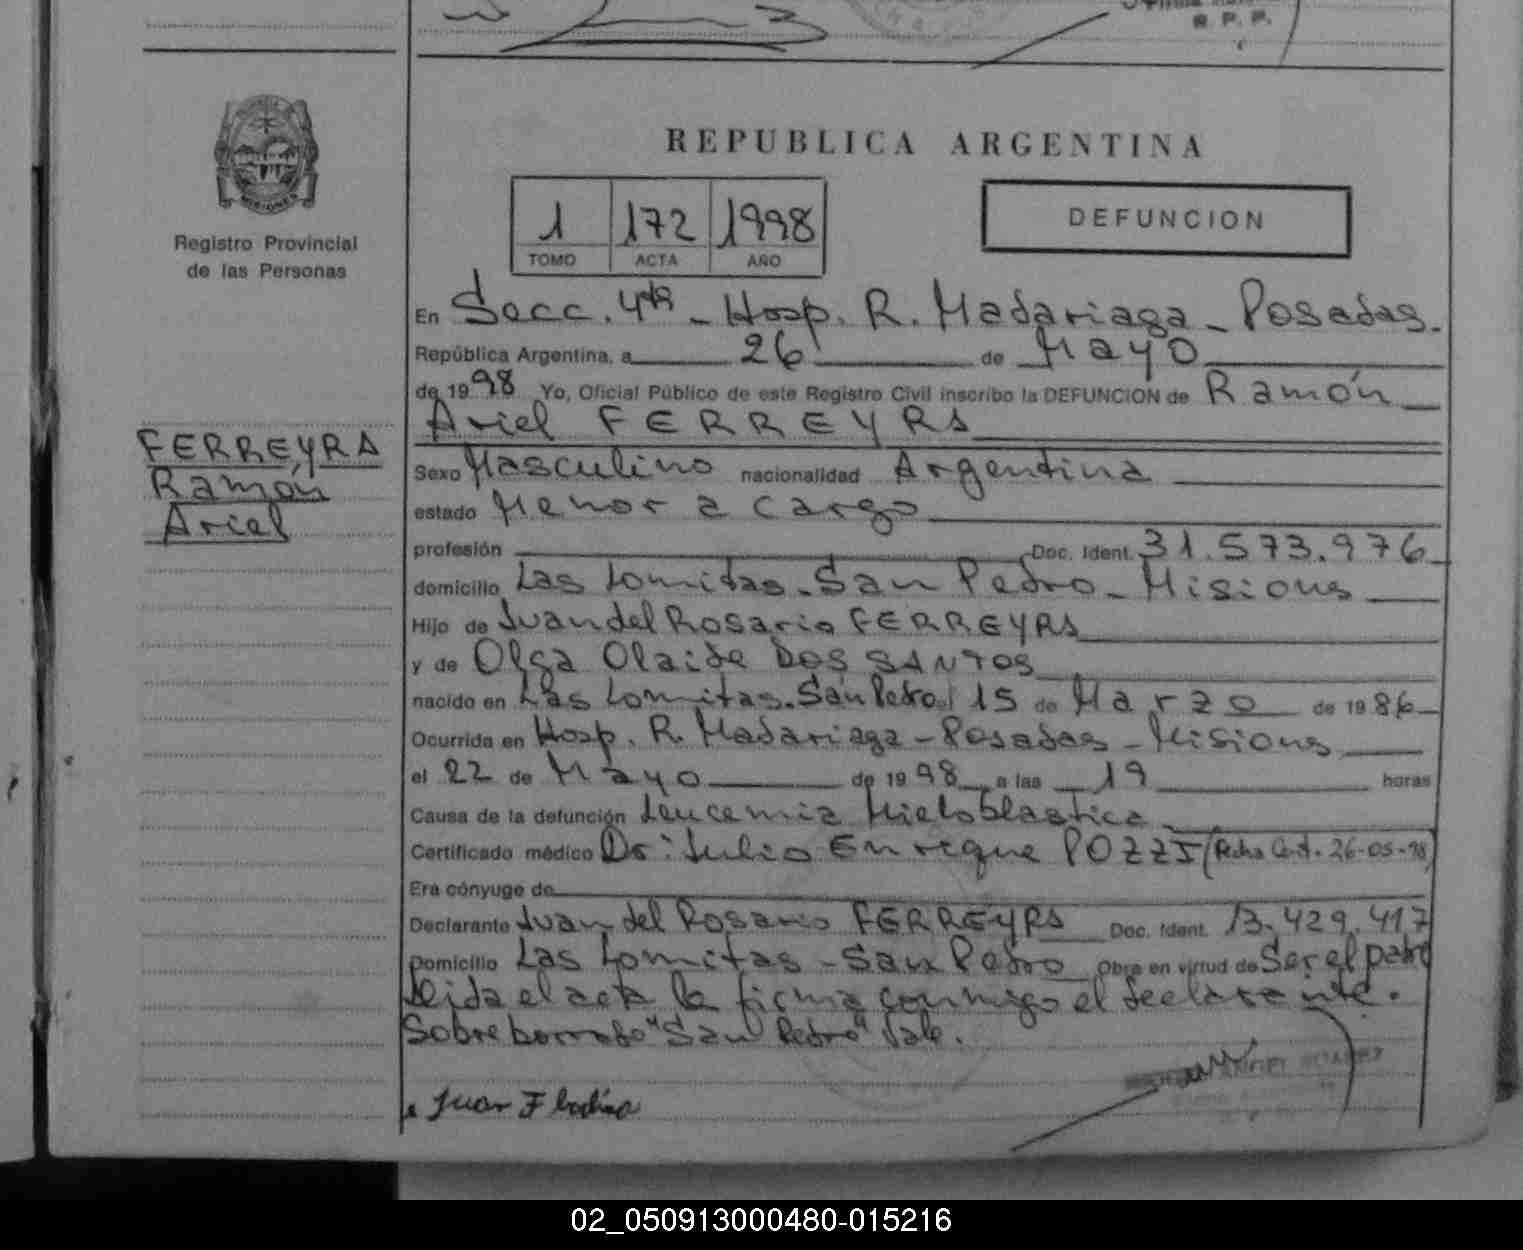 R. P. P.
MISIONES
Registro Provincial
de las Personas
REPUBLICA ARGENTINA
1 172 1998
TOMO ACTA AÑO
DEFUNCION
En Secc. 4ta - Hosp. R. Madariaga - Posadas.
República Argentina, a 26 de Mayo
de 1998 Yo, Oficial Público de este Registro Civil inscribo la DEFUNCION de Ramón
Ariel FERREYRA
FERREYRA
Ramón
Ariel
Sexo Masculino nacionalidad Argentina
estado Menor a cargo
profesión Doc. Ident. 31.573.976
domicilio Las Lomitas - San Pedro - Misiones
Hijo de Juan del Rosario FERREYRA
y de Olga Olaide DOS SANTOS
nacido en Las Lomitas. San Pedro el 15 de Marzo de 1986
Ocurrida en Hosp. R. Madariaga - Posadas - Misiones
el 22 de Mayo de 1998 a las 19 horas
Causa de la defunción Leucemia Mieloblastica
Certificado médico Dr: Julio Enrique POZZI (Fecha Cert. 26-05-98)
Era cónyuge de
Declarante Juan del Rosario FERREYRA Doc. Ident. 13.429.417
Domicilio Las Lomitas - San Pedro Obra en virtud de Ser el padre
Leida el acta la firma conmigo el declarante.
Sobre borrado "San Pedro" Vale.
Juan F
02_050913000480-015216